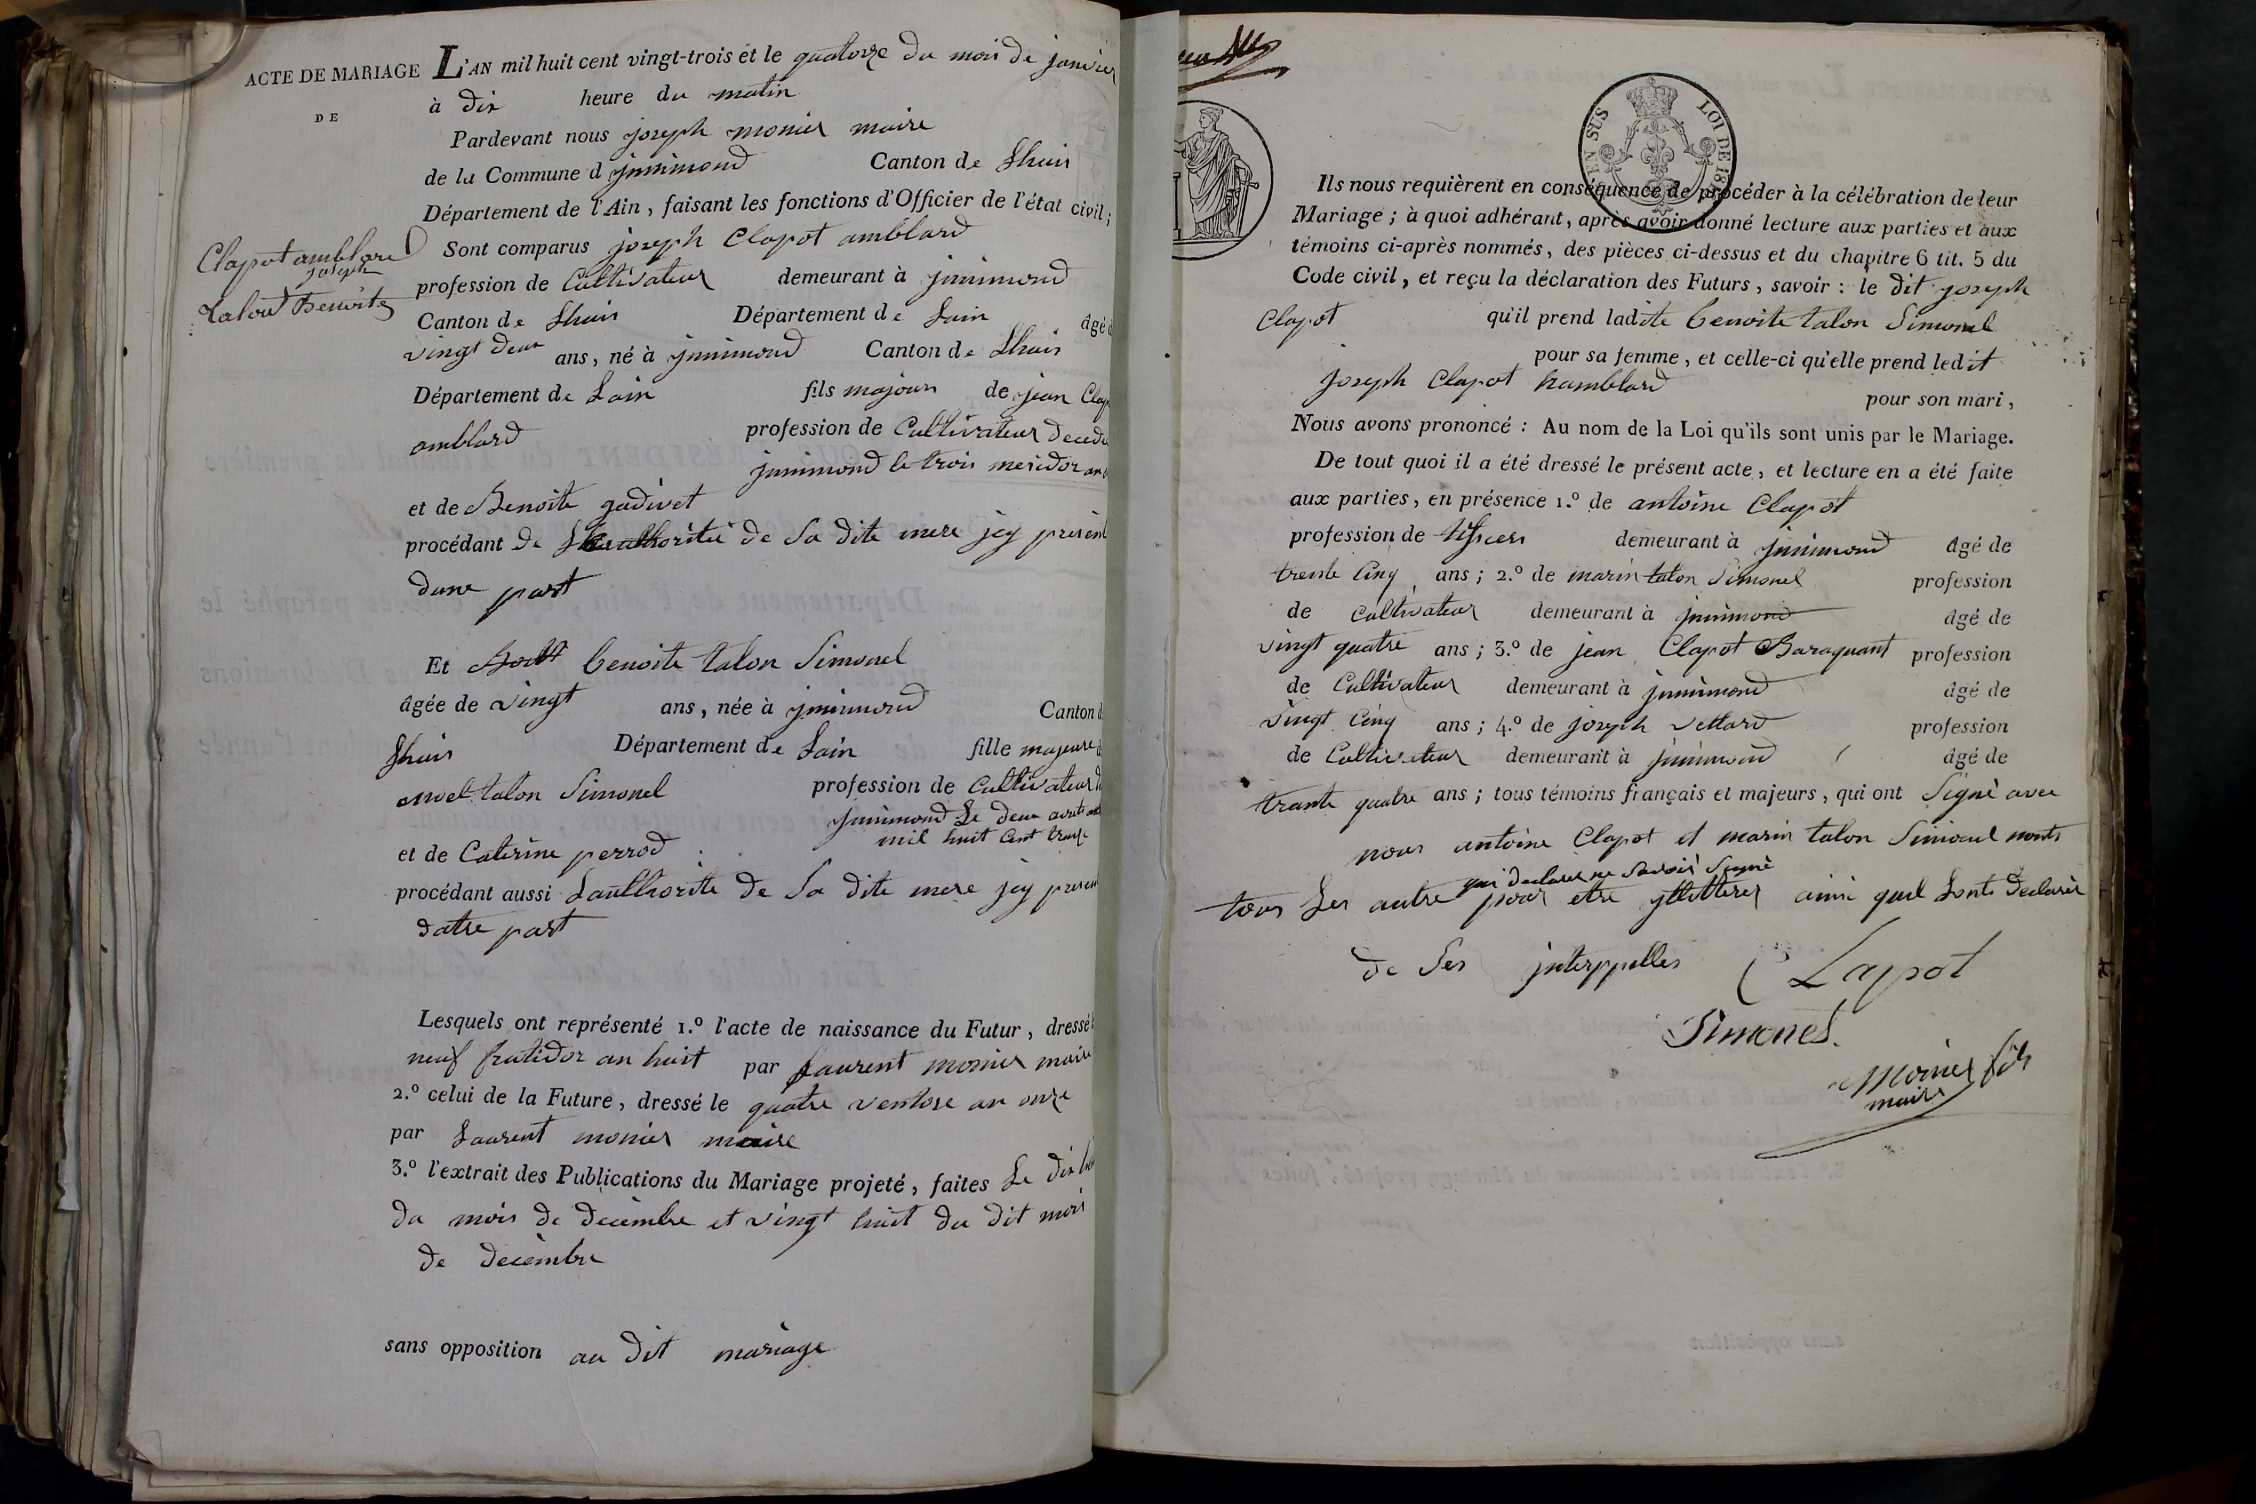 ACTE DE MARIAGE
DE
Clapot amblard
joseph
talon Benoite
L'AN mil huit cent vingt-trois et le quatorze du mois de janvier
à dix heure du matin
Pardevant nous joseph monier maire
de la Commune d jnnimond Canton de Lhuis
Département de l'Ain, faisant les fonctions d'Officier de l'état civil;
Sont comparus joseph Clapot amblard
profession de Cultivateur demeurant à jnnimond
Canton de Lhuis Département de Lain âgé
vingt deux ans, né à jnnimond Canton de Lhuis
Département de Lain fils majour de jean Clap
amblard profession de Cultivateur decede
jnnimond le trois mesidor an
et de Benoite gudivet
procédant de Lauthoritéé de Sa dite mere jcy present
dune part
Et benoite talon Simonel
âgée de vingt ans, née à jnnimond Canton d
Lhuis Département de Lain fille majeure
noel talon Simonel profession de Cultivateur
jnnimond Le deux avrit
mil huit Cent treize
et de Caterine perrod
procédant aussi Lauthorité de Sa dite mere jcy present
datre part
Lesquels ont représenté 1.º l'acte de naissance du Futur, dressé
neuf frutidor an huit par Laurent monier maire
2.º celui de la Future, dressé le quatre ventose an onze
par Laurent monier maire
3.º l'extrait des Publications du Mariage projeté, faites Le dix
du mois de decembre et vingt huit du dit mois
de decembre
sans opposition au dit mariage
EN SUS LOI DE 18
Ils nous requièrent en conséquence de procéder à la célébration de leur
Mariage; à quoi adhérant, après avoir donné lecture aux parties et aux
témoins ci-après nommés, des pièces ci-dessus et du chapitre 6 tit. 5 du
Code civil, et reçu la déclaration des Futurs, savoir: le dit joseph
Clapot qu'il prend ladite benoite talon Simonel
pour sa femme, et celle-ci qu'elle prend ledit
joseph Clapot hamblard pour son mari,
Nous avons prononcé: Au nom de la Loi qu'ils sont unis par le Mariage.
De tout quoi il a été dressé le présent acte, et lecture en a été faite
aux parties, en présence 1.º de antoine Clapot
profession de demeurant à jnnimond âgé de
trente Cinq ans; 2.º de marin talon Simonel profession
de Cultivateur demeurant à jnnimond âgé de
vingt quatre ans; 3.º de jean Clapot Baraquant profession
de Cultivateur demeurant à jnnimond âgé de
vingt Cinq ans; 4.º de joseph vettard profession
de Cultivateur demeurant à jnnimond âgé de
trante quatre ans; tous témoins français et majeurs, qui ont Signè avec
nous antoine Clapot et marin talon Simonel nonts
qui declarer ne Savoir Signè
tous Les autre pour etre jllitterer ainsi quel Lonts declarèr
de Ser jnterppelles CLapot
Simonel.
Monier fils
maire